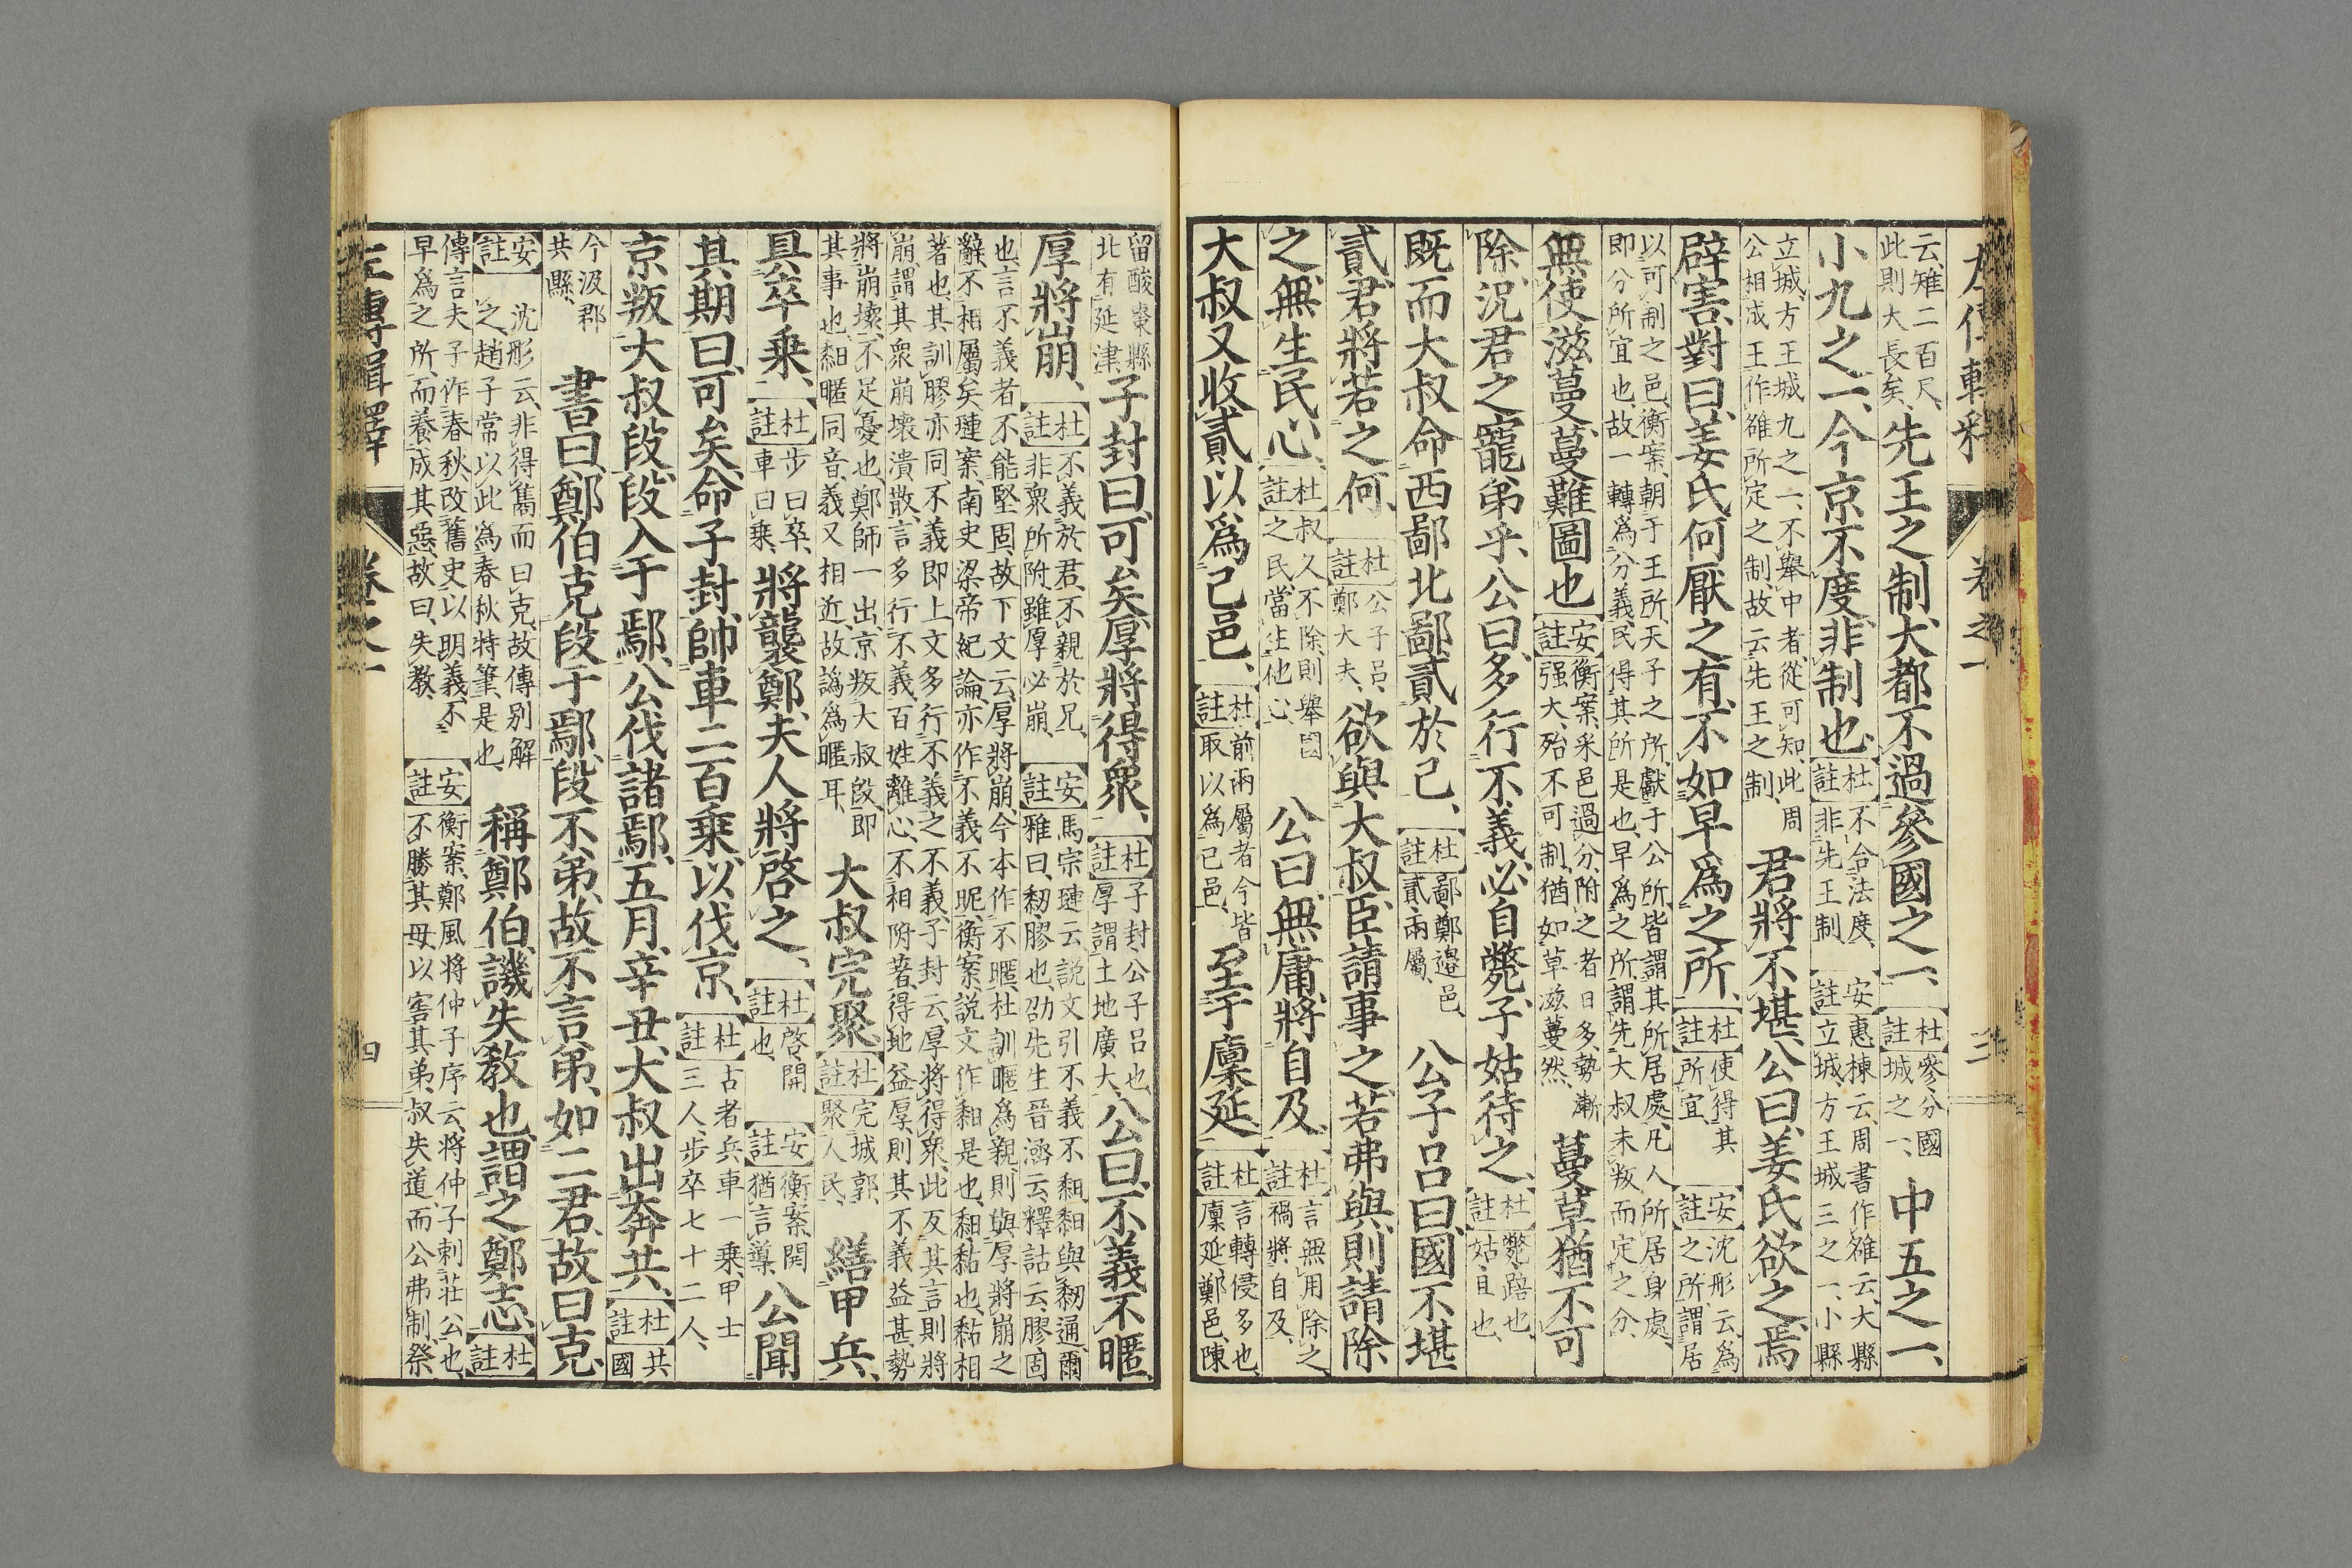 左傳輯釋 卷之一 三
云雉二百尺、
此則大長矣、
先王之制、大都不過參國之一、
杜註
參分國
城之一、
中五之一、
小九之一、今京不度、非制也、
杜註
不合法度、
非先王制、
安註
惠棟云、周書作雒云、大縣
立城、方王城三之一、小縣
立城、方王城九之一、不舉中者、從可知、此周
公相成王作雒所定之制、故云先王之制、
君將不堪、公曰、姜氏欲之、焉
辟害、對曰、姜氏何厭之有、不如早爲之所、
杜註
使得其
所宜、
安註
沈彤云、爲
之所、謂居
以可制之邑、衡案、朝于王所、天子之所、獻于公所、皆謂其所居處、凡人所居身處、
即分所宜也、故一轉爲分義、民得其所是也、早爲之所、謂先大叔未叛而定之分、
無使滋蔓、蔓難圖也、
安註
衡案、釆邑過分、附之者日多、勢漸
强大、殆不可制、猶如草滋蔓然、
蔓草猶不可
除、況君之寵弟乎、公曰、多行不義必自斃、子姑待之、
杜註
斃、踣也、
姑、且也、
既而大叔命西鄙北鄙貳於己、
杜註
鄙、鄭邊邑、
貳、兩屬、
公子呂曰、國不堪
貳、君將若之何、
杜註
公子呂、
鄭大夫、
欲與大叔、臣請事之、若弗與、則請除
之、無生民心、
杜註
叔久不除、則舉國
之民、當生他心、
公曰、無庸、將自及、
杜註
言無用除之、
禍將自及、
大叔又收貳、以爲己邑、
杜註
前兩屬者、今皆
取以爲己邑、
至于廩延、
杜註
言轉侵多也、
廩延鄭邑、陳
留酸棗縣
北有延津、
子封曰、可矣、厚將得衆、
杜註
子封、公子呂也、
厚謂土地廣大、
公曰、不義不暱、
厚將崩、
杜註
不義於君、不親於兄、
非衆所附、雖厚必崩、
安註
馬宗璉云、説文引不義不䵒、䵒與䵑通、爾
雅曰、䵑、膠也、劭先生晉涵云、釋詁云、膠、固
也、言不義者、不能堅固、故下文云、厚將崩、今本作不暱、杜訓暱爲親、則與厚將崩之
辭不相屬矣、璉案、南史梁帝紀論、亦作不義不昵、衡案、説文作䵒是也、䵒、黏也、黏相
著也、其訓膠亦同、不義即上文多行不義之不義、子封云、厚將得衆、此反其言則將
崩、謂其衆崩壞潰散、言多行不義、百姓離心、不相附著、得地益厚、則其不義益甚、勢
將崩壞、不足憂也、鄭師一出、京叛大叔段、即
其事也、䵒暱同音、義又相近、故譌爲暱耳、
大叔完聚、
杜註
完城郭、
聚人民、
繕甲兵、
具卒乘、
杜註
步曰卒、
車曰乘、
將襲鄭、夫人將啓之、
杜註
啓、開
也、
安註
衡案、開
猶言導、
公聞
其期曰、可矣、命子封、帥車二百乘以伐京、
杜註
古者兵車一乘、甲士
三人、步卒七十二人、
京叛大叔段、段入于鄢、公伐諸鄢、五月、辛丑、大叔出奔共、
杜註
共
國
今汲郡
共縣、
書曰、鄭伯克段于鄢、段不弟、故不言弟、如二君、故曰克、
安註
沈彤云、非得雋而曰克、故傳別解
之、趙子常以此爲春秋特筆、是也、
稱鄭伯、譏失教也、謂之鄭志、
杜註
傳言夫子作春秋、改舊史以明義、不
早爲之所、而養成其惡、故曰、失教、
安註
衡案、鄭風將仲子序云、將仲子刺莊公也、
不勝其母、以害其弟、叔失道、而公弗制、祭
左傳輯釋 卷之一 四